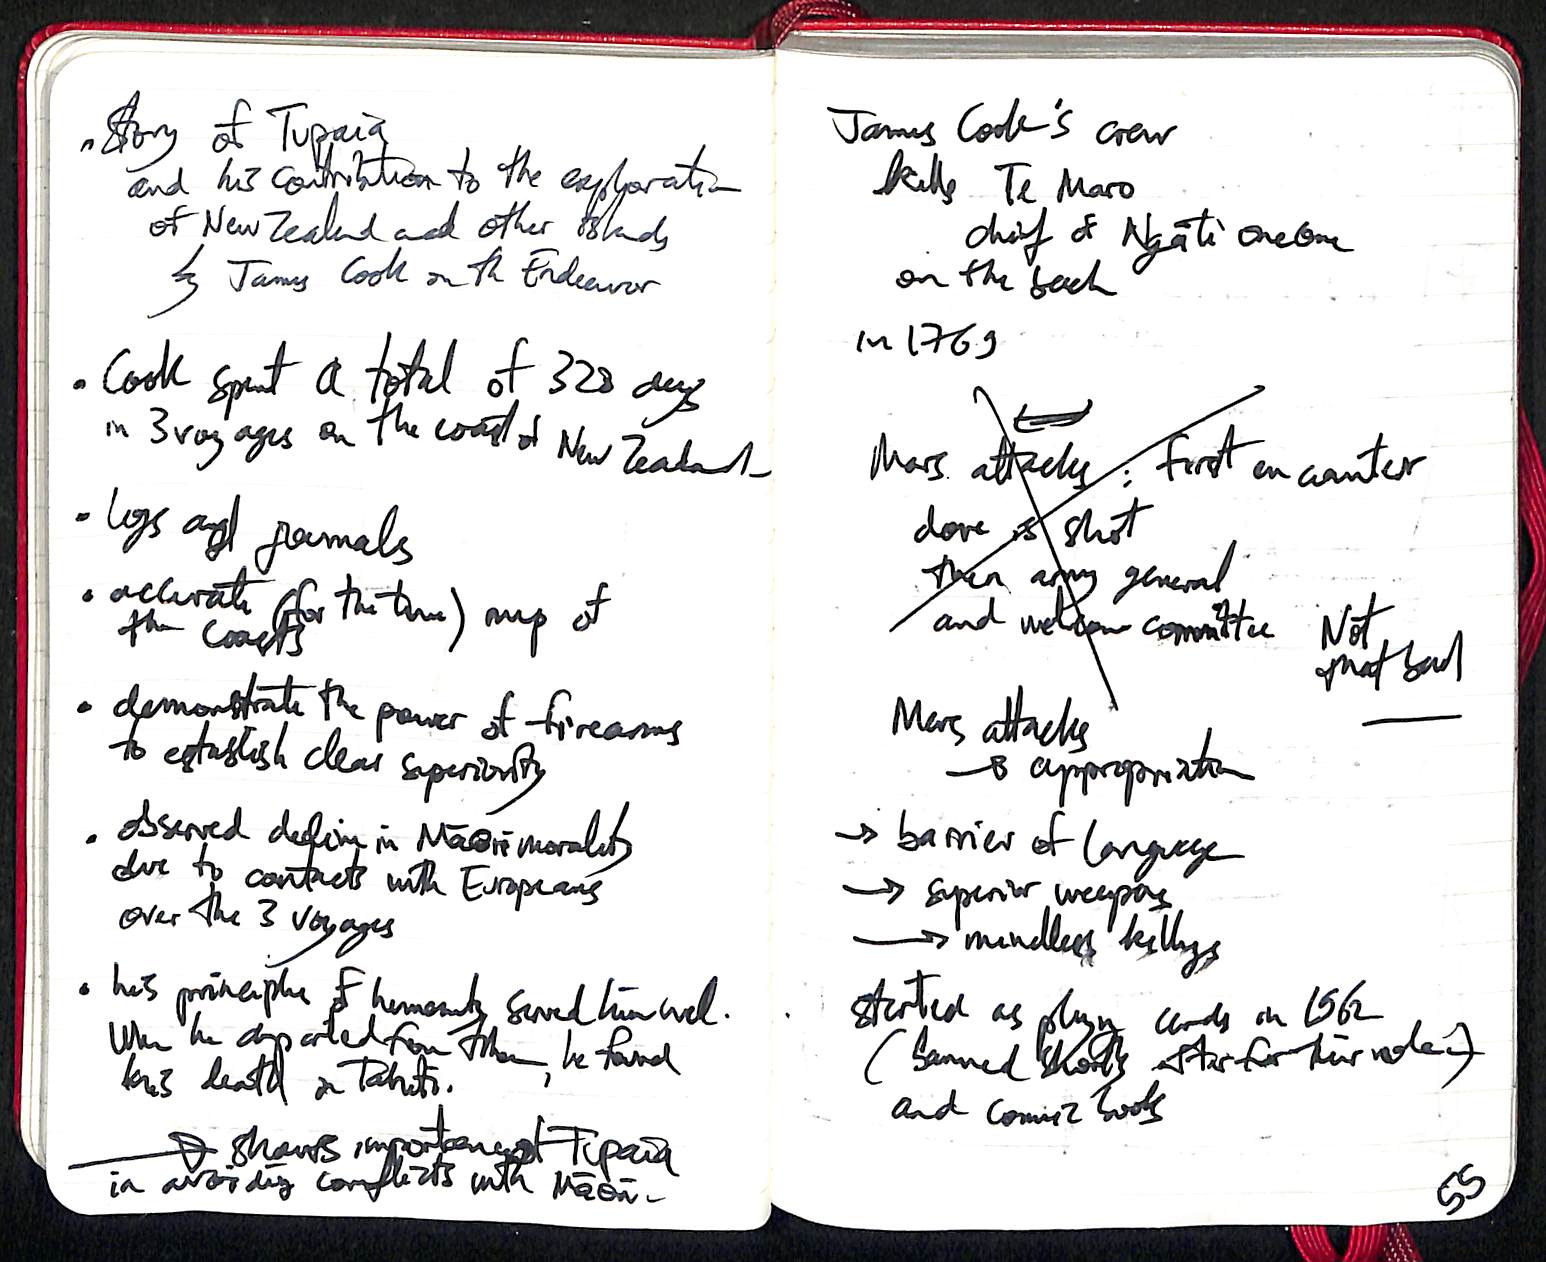 • Story of Tupaia
and his contribution to the exploration
of New Zealand and other islands
by James Cook on the Endeavor
• Cook spent a total of 328 days
in 3 voyages on the coast of New Zealand
• logs and journals
• accurate (for the time) map of
the coasts
• demonstrate the power of firearms
to establish clear superiority
• observed decline in Māori morality
due to contacts with Europeans
over the 3 voyages
• his principle of humanity served him well.
When he departed from them, he found
his death in Tahiti.
→ shows importance of Tupaia
in avoiding conflicts with Māori.
James Cook's crew
kills Te Maro
chief of Ngāti Oneone
on the beach
in 1769
Mars attacks : first encounter
dove is shot
then army general
and welcome committee
Not
that bad
Mars attacks
→ appropriation
→ barrier of language
→ superior weapons
→ mindless killings
started as playing cards in 1962
(banned shortly after for their
and comic books
55